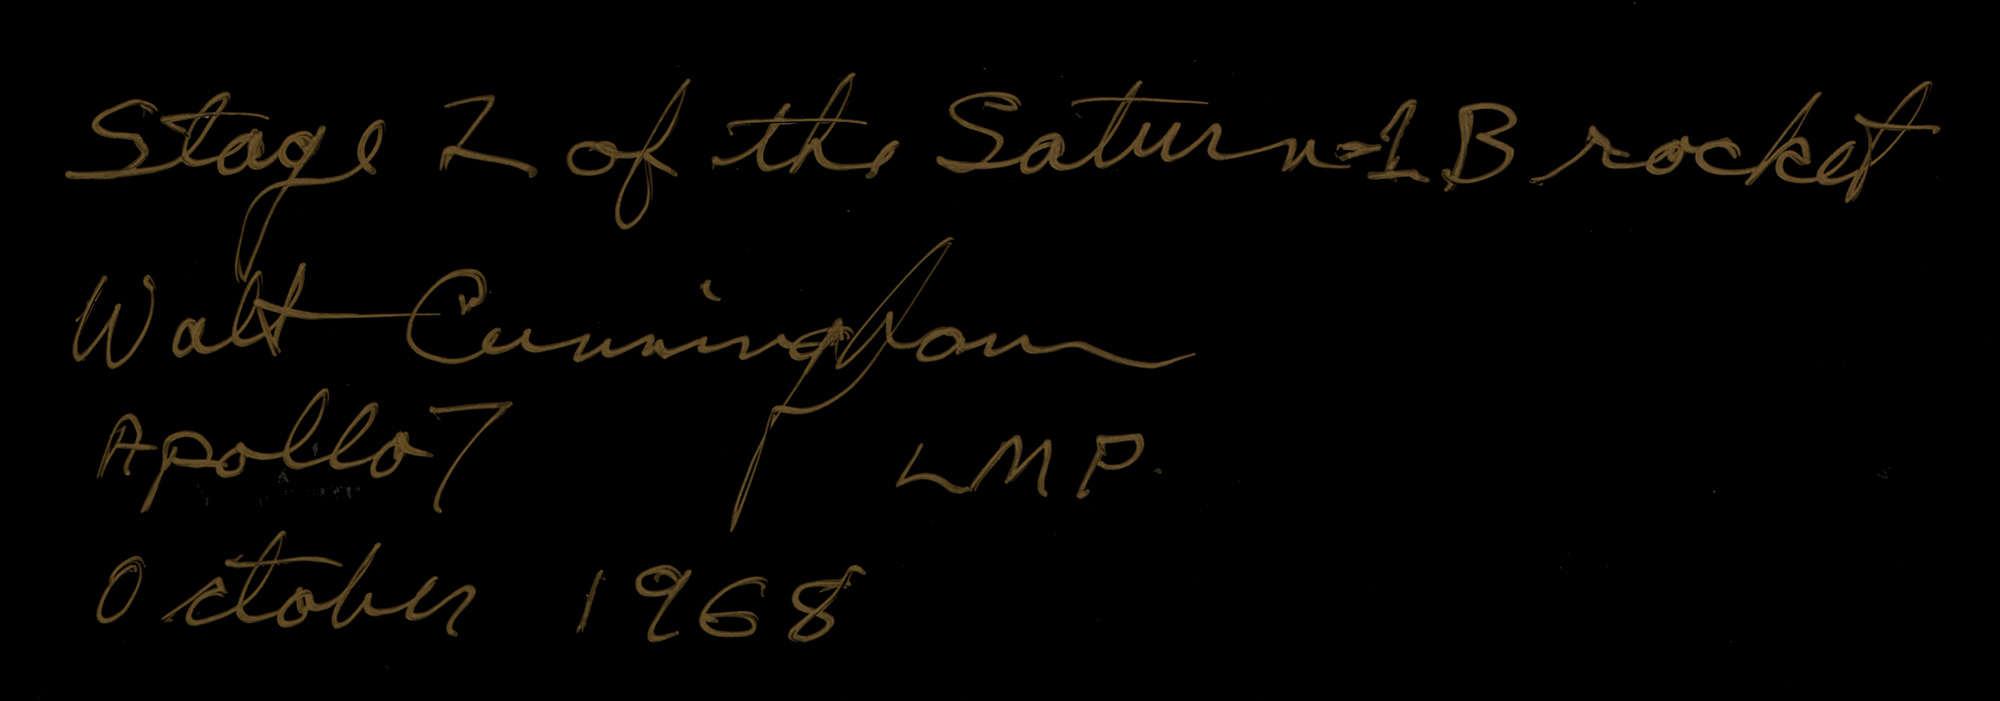 Stage 2 of the Saturn-1B rocket
Walt Cunningham
Apollo 7 LMP
October 1968